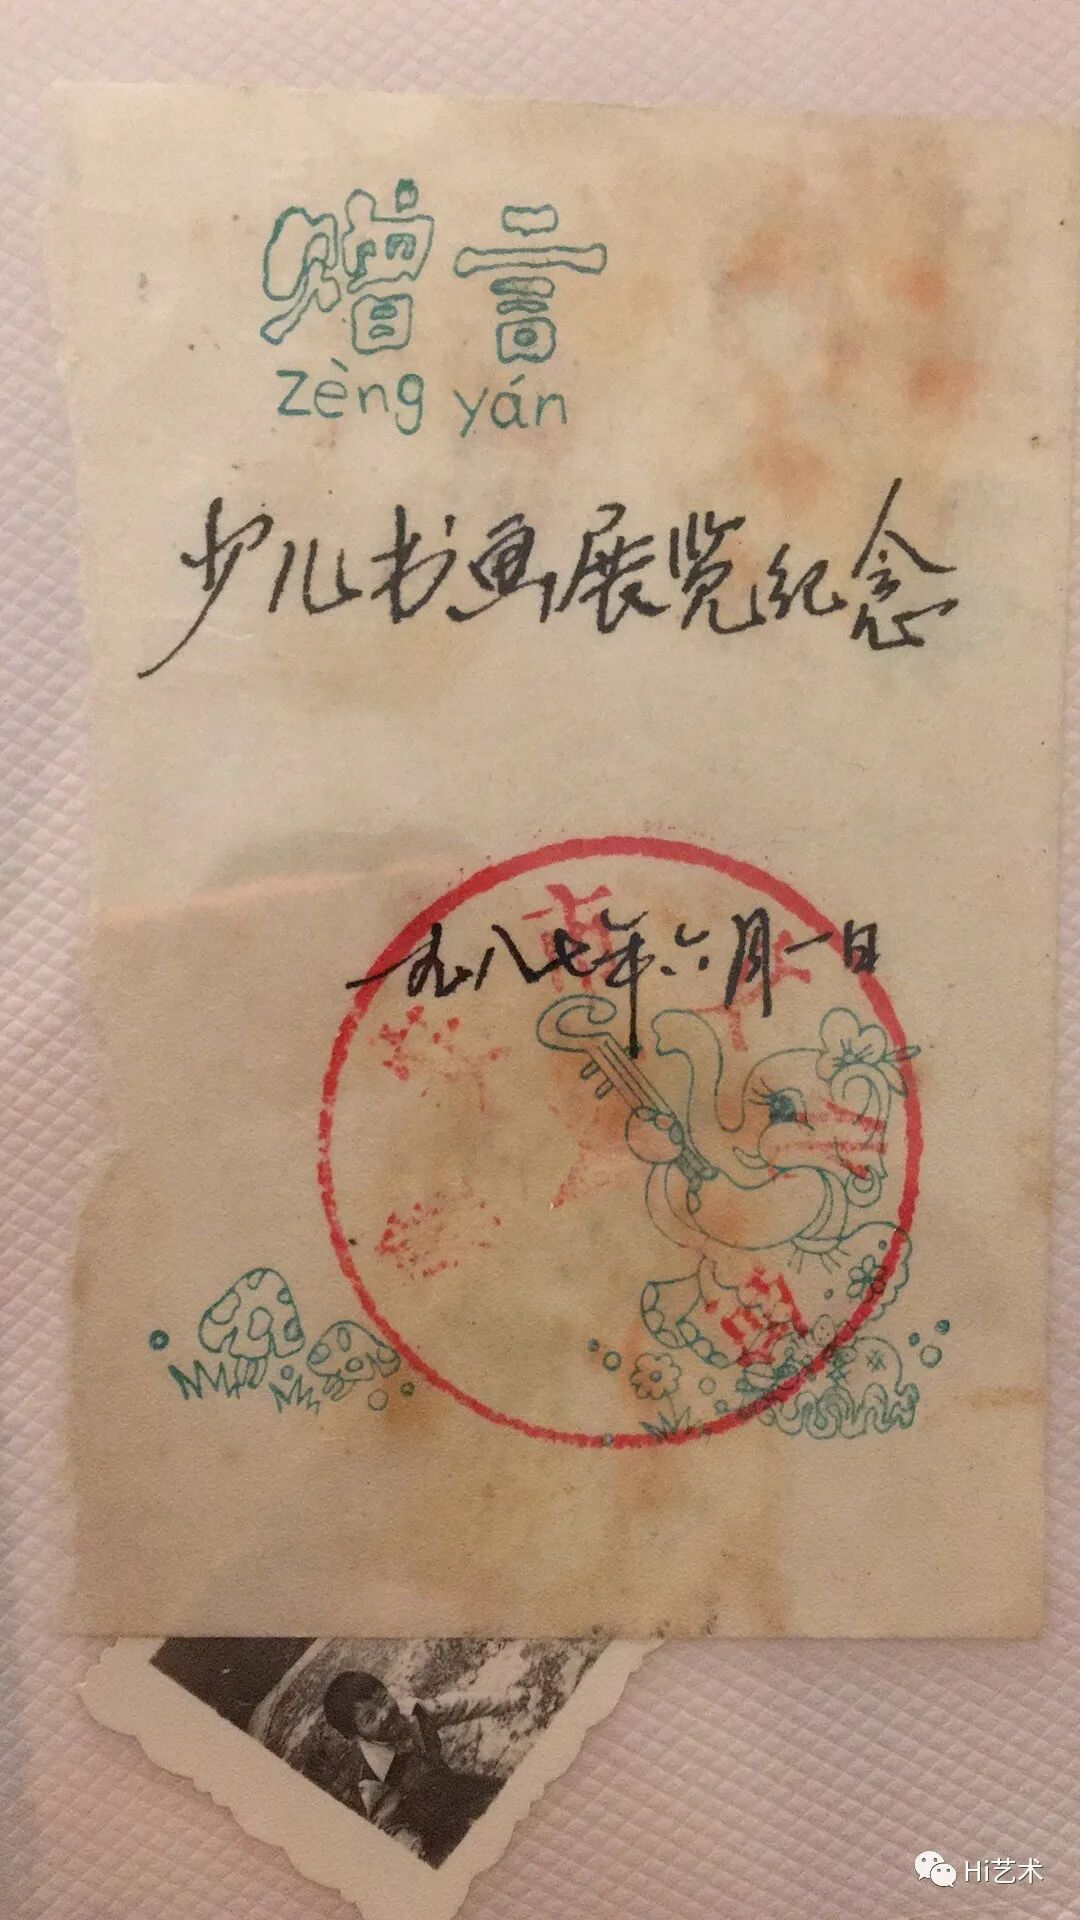 赠言
zèng yán
少儿书画展览纪念
一九八七年六月一日
Hi艺术